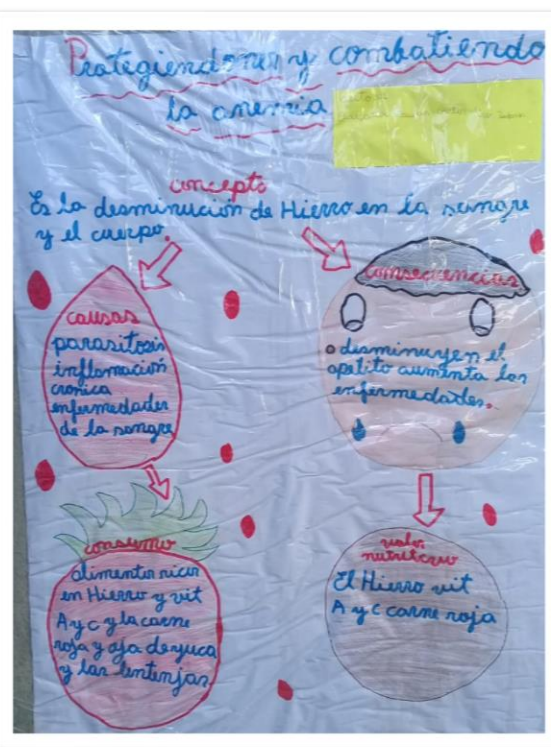 Protegiendonos y combatiendo
la anemia
concepto
Es la desminución de Hierro en la sangre
y el cuerpo.
causas
parasitosis
inflamación
cronica
enfermedades
de la sangre
consecuencias
desminuyen el
apetito aumenta las
enfermedades.
consumo
alimentos ricos
en Hierro y vit
A y C y la carne
roja y oja de yuca
y las lentenjas
valor
nutritivo
El Hierro vit
A y C carne roja